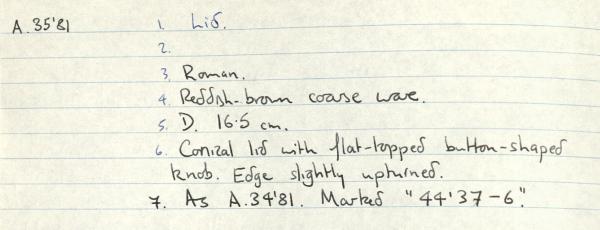 A.35'81 1. Lid.
2.
3. Roman.
4. Reddish-brown coarse ware.
5. D. 16.5 cm.
6. Conical lid with flat-topped button-shaped
knob. Edge slightly upturned.
7. As A.34'81. Marked "44'37-6".